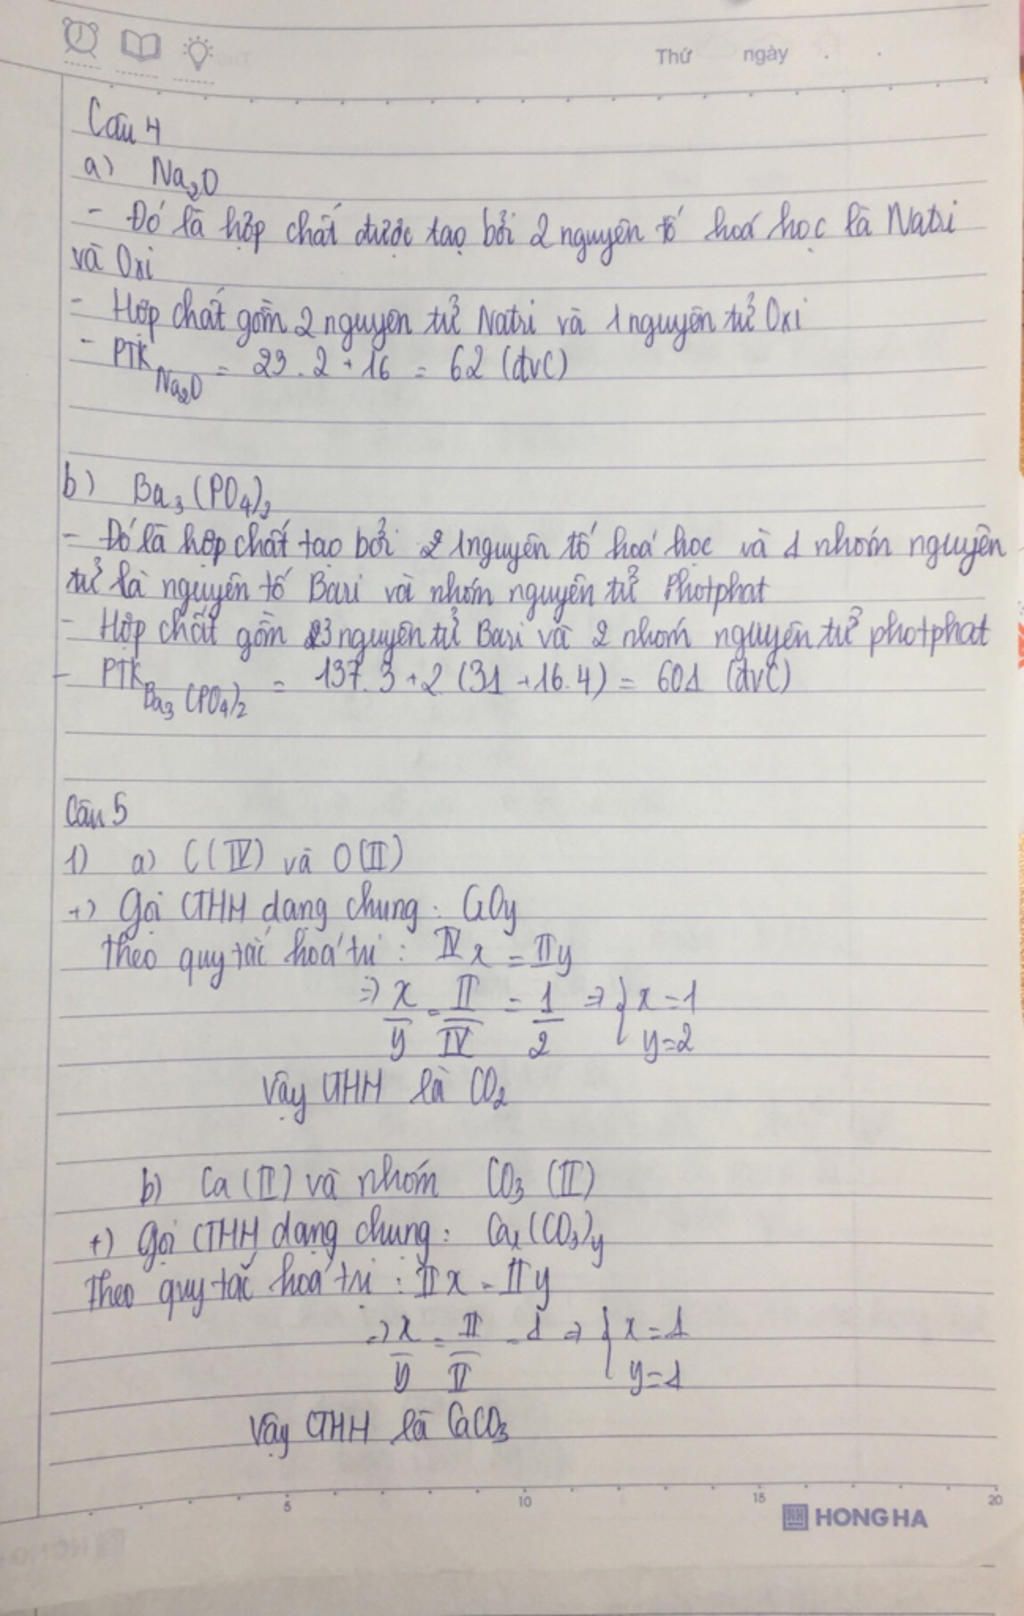 Thứ ngày . .
Câu 4
a) Na₂O
- Đó là hợp chất được tạo bởi 2 nguyên tố hoá học là Natri
và Oxi
- Hợp chất gồm 2 nguyên tử Natri và 1 nguyên tử Oxi
- PTK Na₂O = 23.2 + 16 = 62 (đvC)
b) Ba₃(PO₄)₂
- Đó là hợp chất tạo bởi 1 nguyên tố hoá học và 1 nhóm nguyên
tử là nguyên tố Bari và nhóm nguyên tử Photphat
- Hợp chất gồm 3 nguyên tử Bari và 2 nhóm nguyên tử photphat
- PTK Ba₃(PO₄)₂ = 137.3 + 2 (31 + 16.4) = 601 (đvC)
Câu 5
1) a) C(IV) và O(II)
+) Gọi CTHH dạng chung: CxOy
Theo quy tắc hoá trị: IV x = II y
=> x/y = II/IV = 1/2 => { x = 1
y = 2
Vậy CTHH là CO₂
b) Ca (II) và nhóm CO₃ (II)
+) Gọi CTHH dạng chung: Cax(CO₃)y
Theo quy tắc hoá trị: II x = II y
=> x/y = II/II = 1 => { x = 1
y = 1
Vậy CTHH là CaCO₃
5 10 15 20
HONG HA